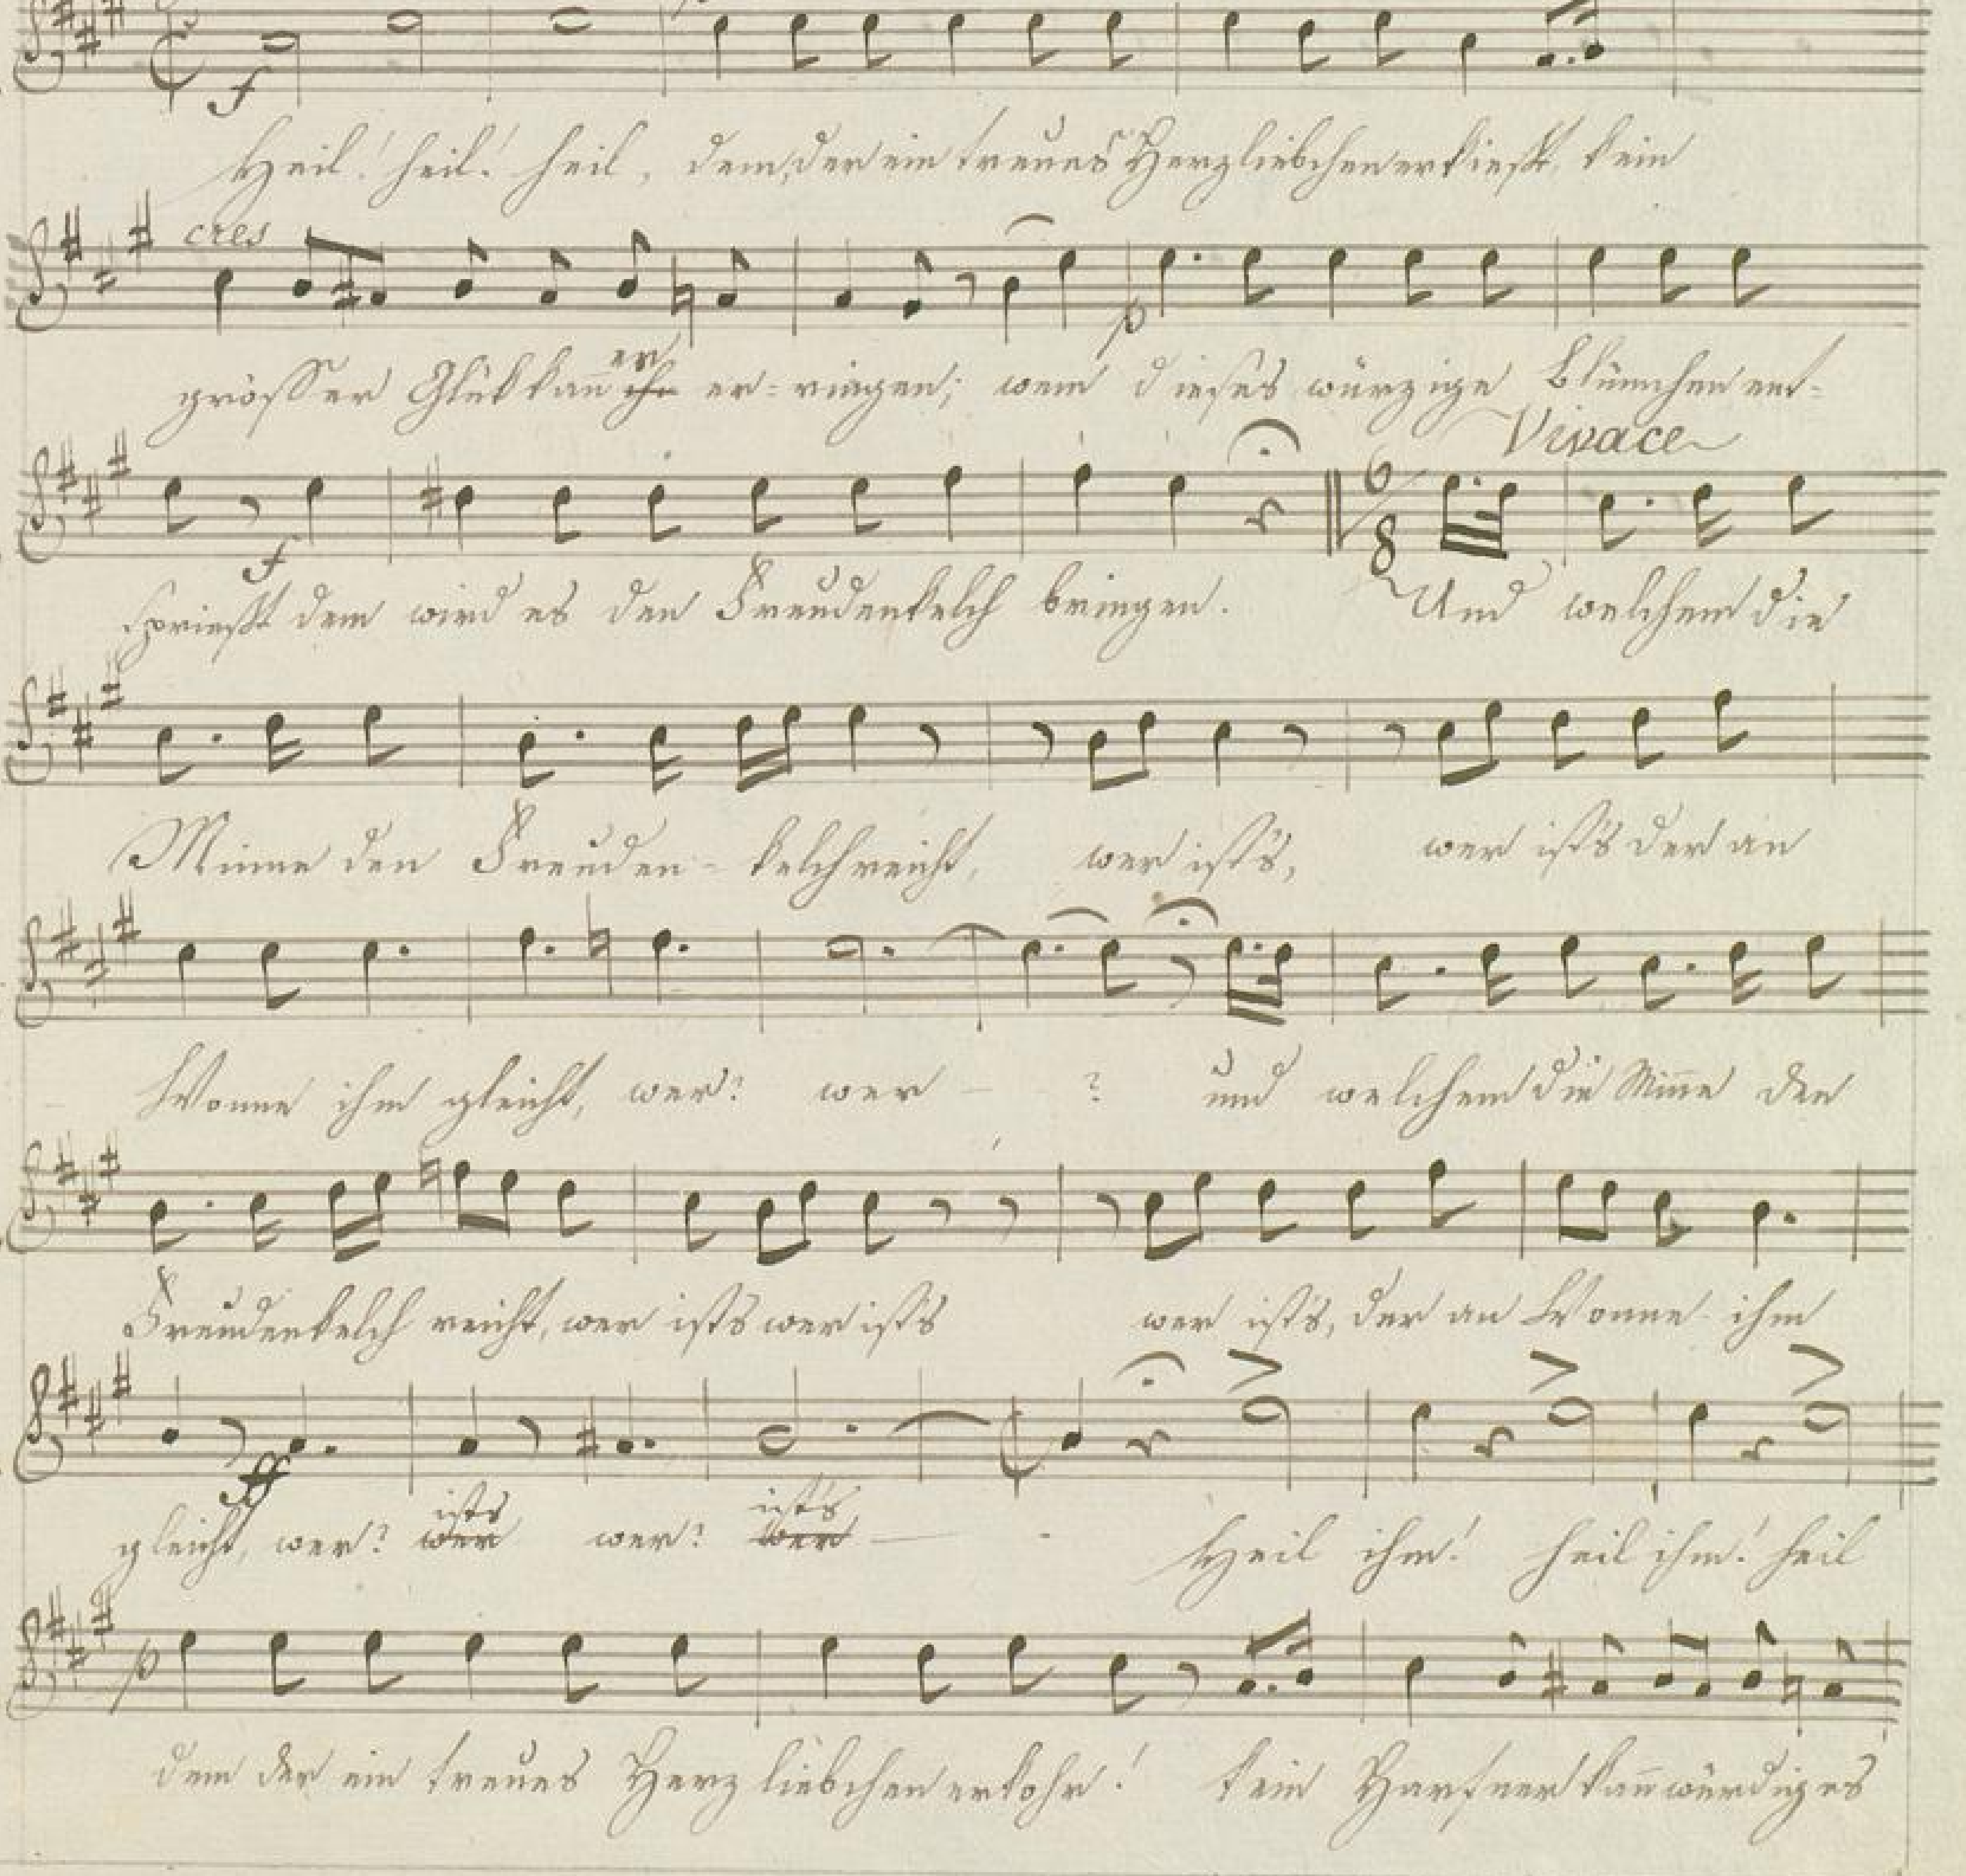 f
Heil! heil! heil, dem, der ein treues Herzliebchen erkießt, kein
cres
p
er
grösser Glük kañ ihn er=ringen; wem dieses würzige Blümchen ent=
Vivace
6/8
f
sprießt dem wird es den Freudenkelch bringen. Und welchem die
Minne den Freuden=kelch reicht, wer ists, wer ists der an
Wonne ihm gleicht, wer? wer — ? und welchem die Miñe den
Freudenkelch reicht, wer ists wer ists wer ists, der an Wonne ihm
ff
ists ists
gleicht, wer? wer wer? wer — Heil ihm! heil ihm! heil
p
dem der ein treues Herz liebchen erkohr! kein Harfner kañ würdiges